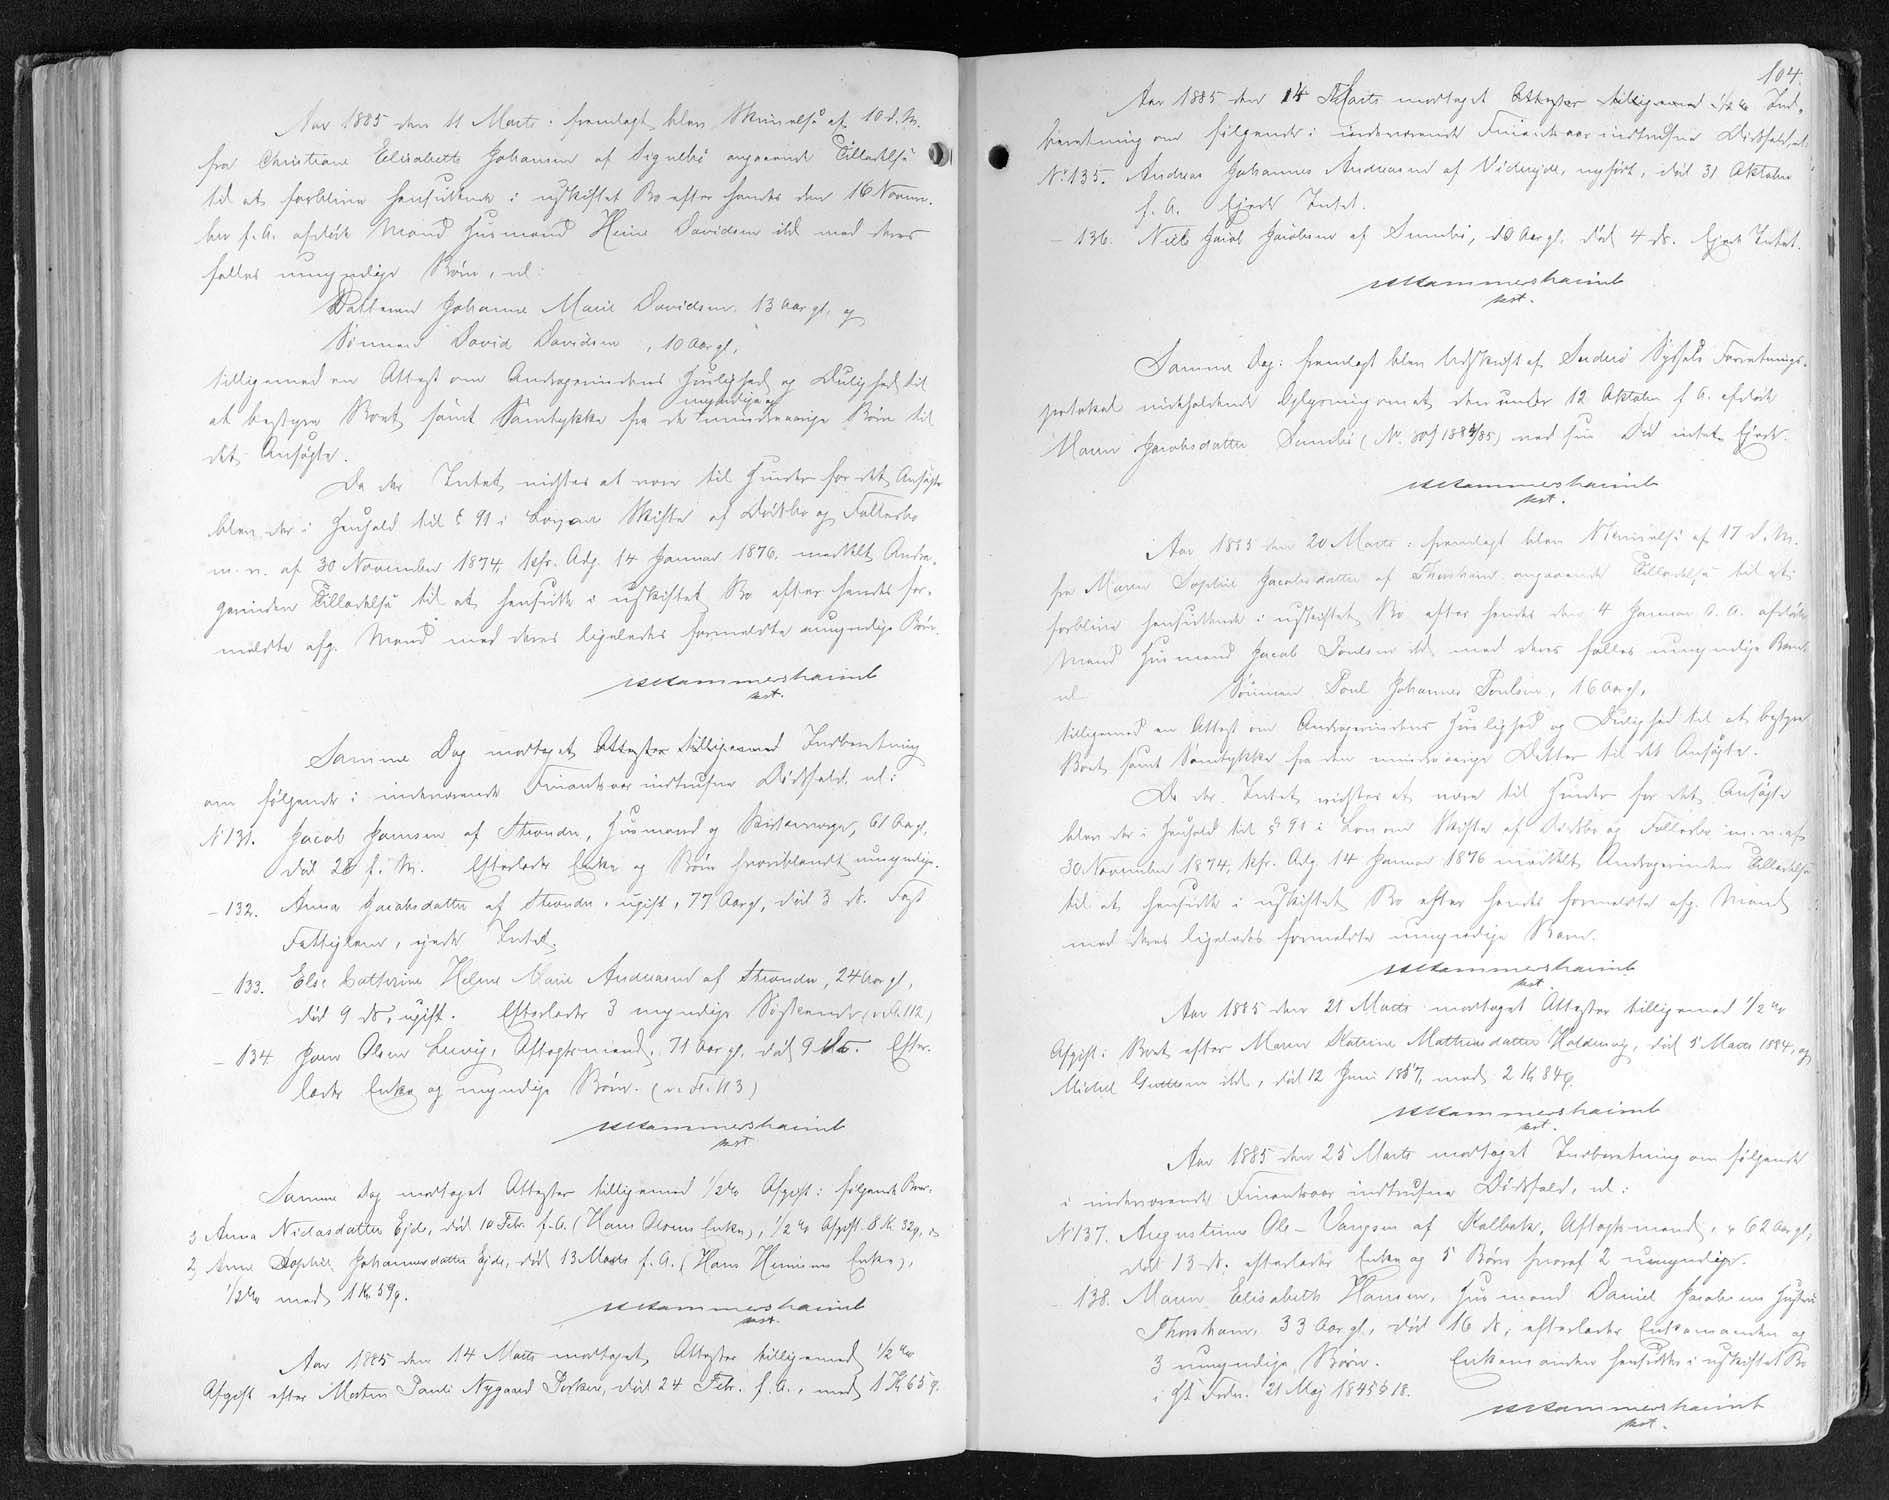 Aar 1885 den 11 Marts: fremlagt blev Skrivelse af 10 d. M.
fra Christiane Elisabeth Johansen af Signebø angaaende Tilladelse
til at forblive hensiddende i uskiftet Bo efter hendes den 16 Novem-
ber f. A. afdøde Mand Husmand Heine Davidsen ibd med deres
fælles umyndige Børn, nl:
Datteren Johanne Marie Davidsen, 13 Aar gl, og
Sønnen David Davidsen, 10 Aar gl,
tilligemed en Attest om Andragerindens Huslighed og Duelighed til
myndige og
at bestyre Boet, samt Samtykke fra de mindreaarige Børn til
det Ansøgte.
Da der Intet vidstes at være til Hinder for det Ansøgte
blev der i Henhold til § 91 i Lov om Skifte af Dødsbo og Fællesbo
m. v. af 30 November 1874, kfr. Adg. 14 Januar 1876 meddelt Andra-
gerinden Tilladelse til at hensidde i uskiftet Bo efter hendes for-
meldte afg. Mand med deres ligeledes formeldte umyndige Børn.
HHammershaimb
kst.
Samme Dag modtaget Attester tilligemed Indberetning
om følgende i indeværende Finantsaar indtrufne Dødsfald, nl:
N 131. Jacob Joensen af Strænder, Husmand og Kirkeværge, 61 Aar gl,
død 28 f. M. Efterlader Enke og Børn hvoriblandt umyndige.
- 132. Anna Jacobsdatter af Strænder, ugift, 77 Aar gl, død 3 ds. Fast
Fattiglem, ejede Intet.
- 133. Else Cathrine Helene Marie Andreasen af Strænder, 24 Aar gl,
død 9 ds, ugift. Efterlader 3 myndige Søskende (v. Fl. 112)
- 134 Joen Olsen Lervig, Aftægtsmand, 71 Aar gl, død 9 ds. Efter-
lader Enke og myndige Børn. (v. Fl. 113)
HHammershaimb
kst.
Samme Dag modtaget Attester tilligemed 1/2 % Afgift i følgende Boer:
Anna Niclasdatter Ejde, død 10 Febr. f. A. (Hans Olsens Enke), 1/2 % Afgift 8 K. 32 ø, og
2, Anne Sophie Johannesdatter Ejde, død 13 Marts f. A. (Hans Heinesens Enke),
1/2 % med 1 K. 59 ø.
HHammershaimb
kst.
Aar 1885 den 14 Marts modtaget Attester tilligemed 1/2 %
Afgift efter Morten Pauli Nygaard Porkere, død 24 Febr. f. A., med 1 K 65 ø.
104.
Aar 1885 den 14 Marts modtaget Attester tilligemed 1/2 % Ind-
beretning om følgende i indeværende Finantsaar indtrufne Dødsfald, nl:
N 135. Andreas Johannes Andreasen af Videreide, nyfødt, død 31 Oktober
f. A. Ejede Intet.
- 136. Niels Jacob Jacobsen af Sumbø, Aar gl. død 4 ds. Ejede Intet.
HHammershaimb
kst.
Samme Dag: fremlagt blev Udskrift af Suderø Syssels Forretnings-
protokol indeholdende Oplysning om at den under 12 Oktober f. A. afdøde
Maren Jacobsdatter Sumbø (Nr. 80/1884/85) ved sin Død intet ejede.
HHammershaimb
kst.
Aar 1885 den 20 Marts: fremlagt blev Skrivelse af 17 d. M.
fra Maren Sophie Jacobsdatter af Thorshavn angaaende Tilladelse til at
forblive hensiddende i uskiftet Bo efter hendes den 4 Januar d. A. afdøde
Mand Husmand Jacob Poulsen ibd med deres fælles umyndige Barn
nl Sønnen Poul Johannes Poulsen, 16 Aar gl,
tilligemed en Attest om Andragerindens Huslighed og Duelighed til at bestyre
Boet, samt Samtykke fra den mindreaarige Datter til det Ansøgte.
Da der Intet vidstes at være til Hinder for det Ansøgte
blev der i Henhold til § 91 i Lov om Skifte af Dødsbo og Fællesbo m. v. af
30 November 1874, kfr. Adg. 14 Januar 1876 meddelt Andragerinden Tilladelse
til at hensidde i uskiftet Bo efter hendes formeldte afg. Mand
med deres ligeledes formeldte umyndige Barn.
HHammershaimb
kst.
Aar 1885 den 21 Marts modtaget Attester tilligemed 1/2 %
Afgift i Boet efter Maren Katrine Mathiasdatter Haldersvig, død 5 Marts 1884, og
Michel ibd, død 12 Juni 1857, med 2 K 84 ø.
HHammershaimb
kst.
Aar 1885 den 25 Marts modtaget Indberetning om følgende
i indeværende Finantsaar indtrufne Dødsfald, nl:
N 137. Augustinus Ole - Vangsen af Kalbak, Aftægtsmand, 62 Aar gl,
død 13 ds. efterlader Enke og 5 Børn hvoraf 2 umyndige.
- 138. Maren Elisabeth Hansen, Husmand Daniel Jacobsens Hustru
Thorshavn, 33 Aar gl, død 16 ds, efterlader Enkemanden og
3 umyndige Børn. Enkemanden hensidder i uskiftet Bo
i Hht Frdn. 21 Maj 1845 § 18.
HHammershaimb
kst.